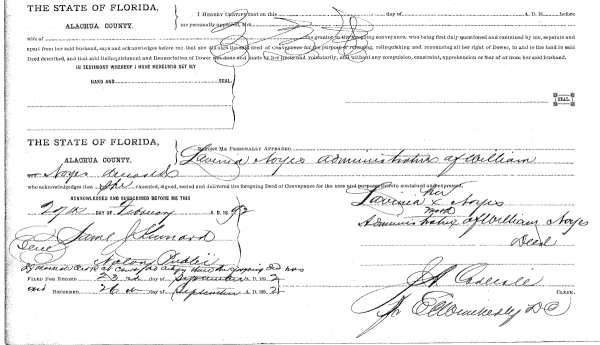 THE STATE OF FLORIDA,
ALACHUA COUNTY.
I HEREBY CERTIFY that on this day of A. D. 18 before
me personally appeared, Mrs.
wife of being grantor in the foregoing conveyance, who being first duly questioned and examined by me, separate and
apart from her said husband, says and acknowledges before me that she did sign the said deed of Conveyance for the purpose of releasing, relinquishing and renouncing all her right of Dower, in and to the land in said
Deed described, and that said Relinquishment and Renunciation of Dower was done and made by her freely and voluntarily, and without any compulsion, constraint, apprehension or fear of or from her said husband.
IN TESTIMONY WHEREOF I HAVE HEREUNTO SET MY
HAND AND SEAL
SEAL
THE STATE OF FLORIDA,
ALACHUA COUNTY.
BEFORE ME PERSONALLY APPEARED
Lavinia Noyes Administratrix of William
Noyes deceased
who acknowledges that she executed, signed, sealed and delivered the foregoing Deed of Conveyance for the uses and purposes therein contained and expressed.
ACKNOWLEDGED AND SUBSCRIBED BEFORE ME THIS
27th DAY OF February A. D. 1892
Lavinia her x mark Noyes
Administratrix of William Noyes
Decd
(Seal)
Notary Public
FILED FOR RECORD 23rd day of September A. D. 1892
and RECORDED 26th day of September A. D. 189
J A Carlisle
CLERK.